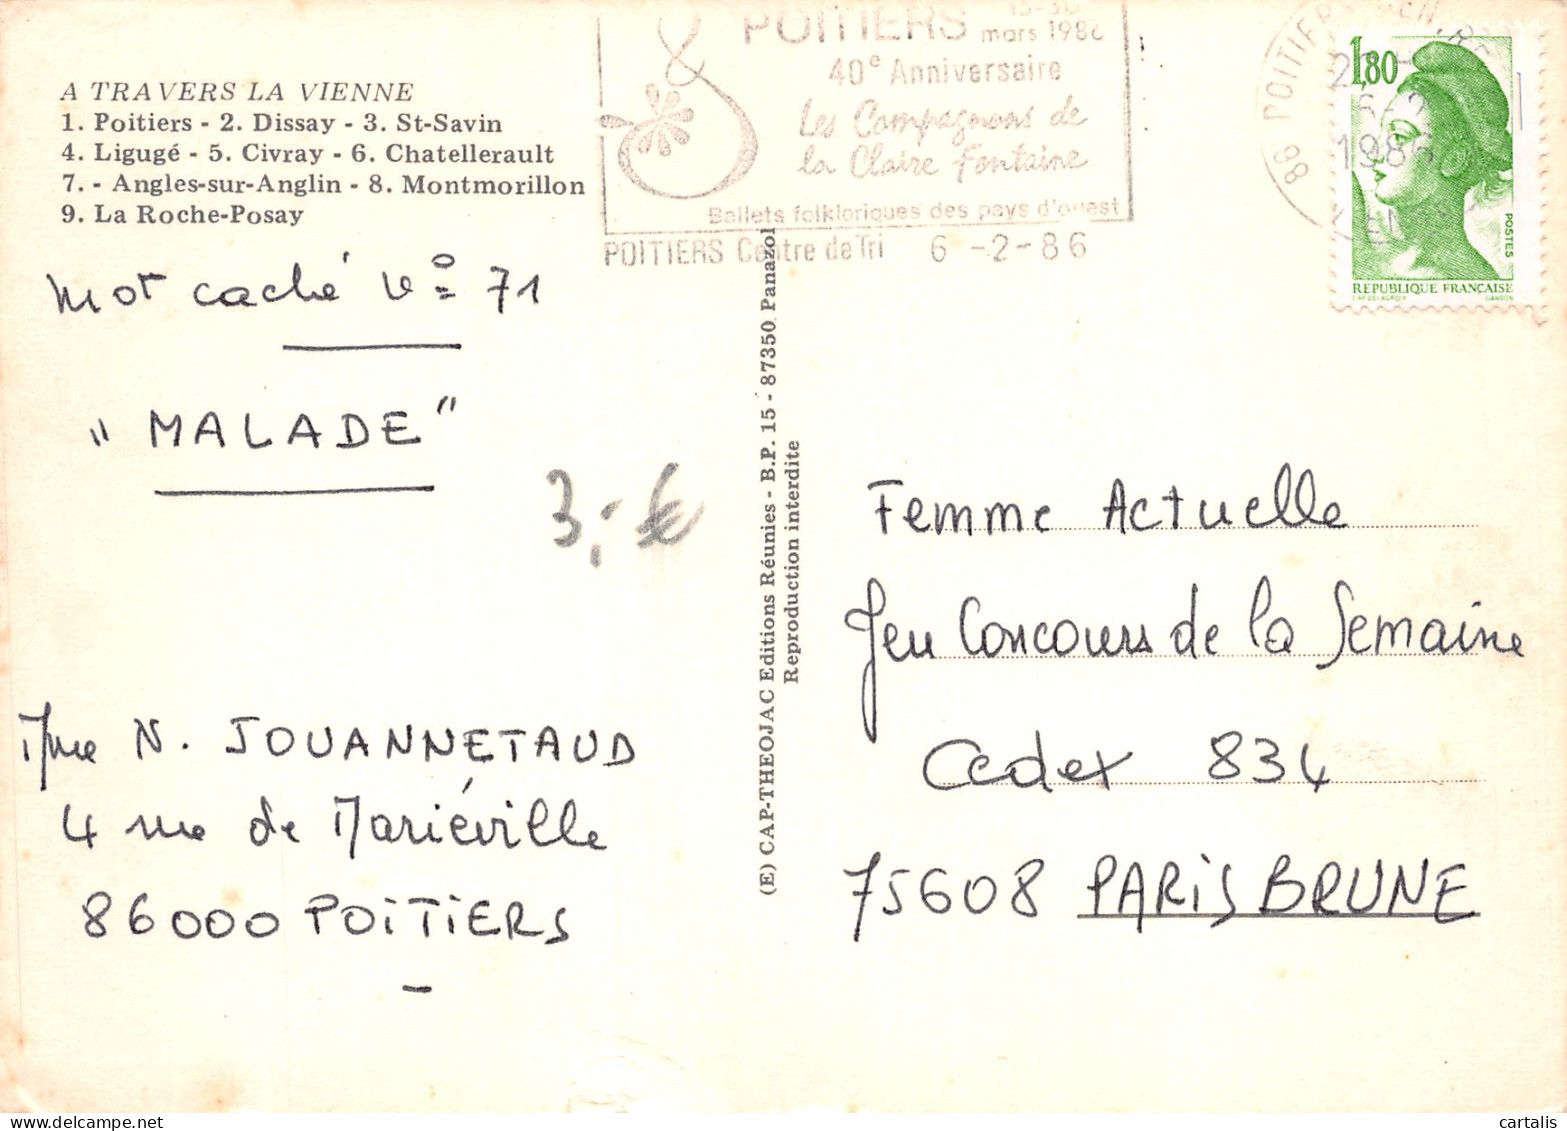 A TRAVERS LA VIENNE
1. Poitiers - 2. Dissay - 3. St-Savin
4. Ligugé - 5. Civray - 6. Chatellerault
7. - Angles-sur-Anglin - 8. Montmorillon
9. La Roche-Posay
mot caché n° 71
"MALADE"
3,-€
Mme N. JOUANNETAUD
4 rue de Mariéville
86000 POITIERS
(E) CAP-THEOJAC Editions Réunies - B.P. 15 - 87350 Panazol
Reproduction interdite
POITIERS
mars 1986
40e Anniversaire
Les Compagnons de
la Claire Fontaine
Ballets folkloriques des pays d'ouest
POITIERS Centre de Tri 6-2-86
86 POITIERS
1986
1,80
POSTES
REPUBLIQUE FRANÇAISE
GANDON
Femme Actuelle
Jeu Concours de la Semaine
Cedex 834
75608 PARIS BRUNE
cartalis